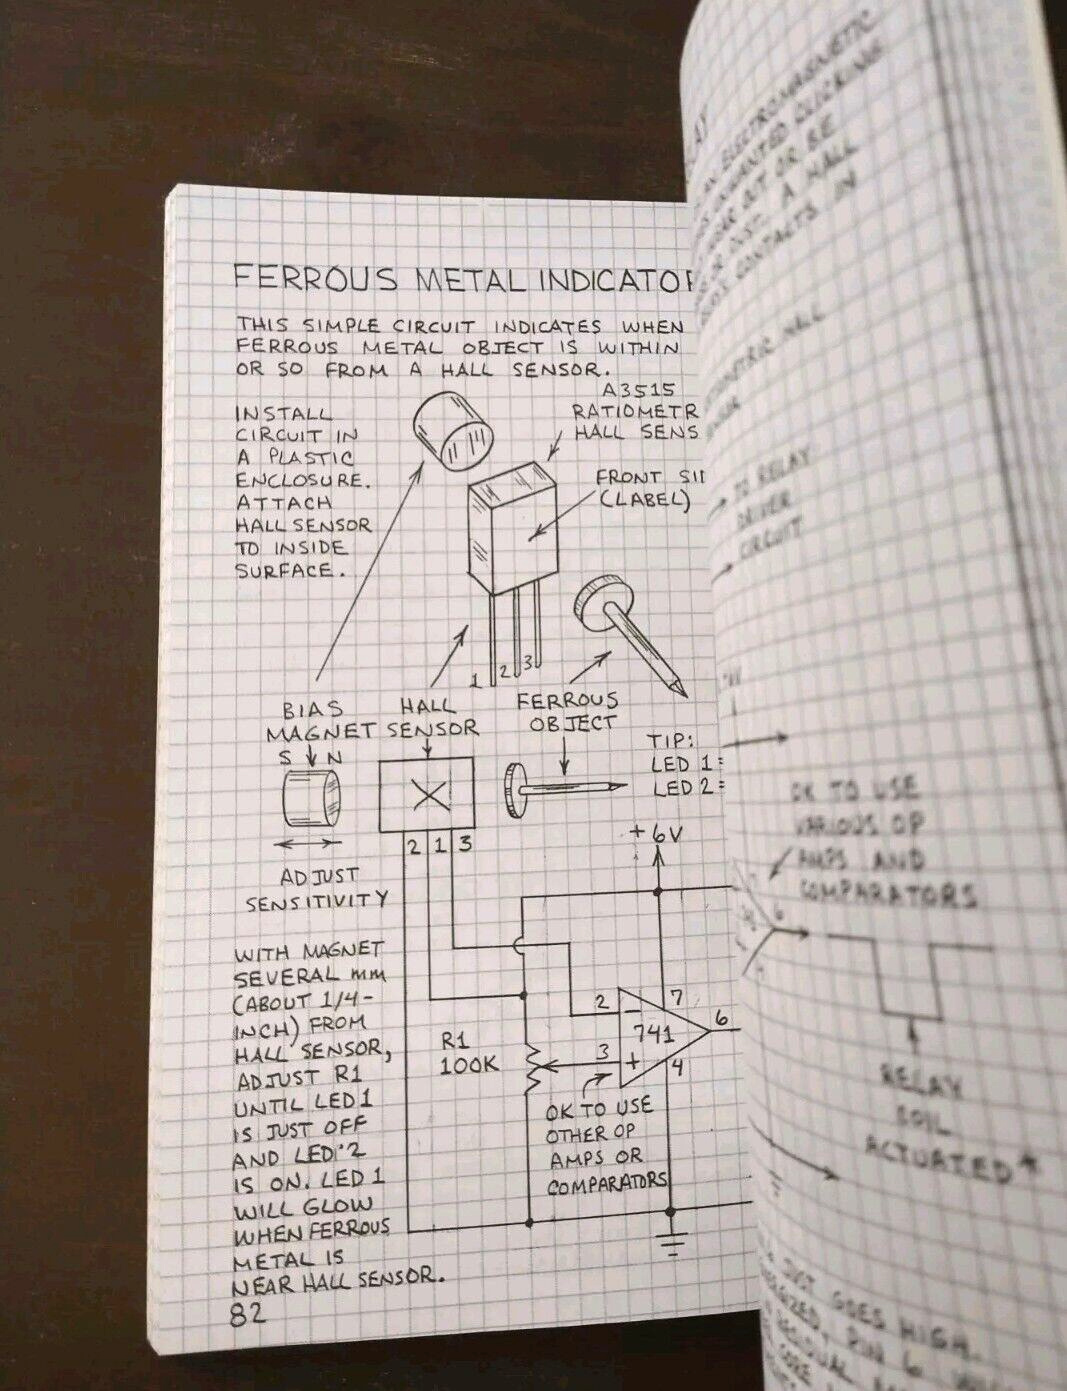 FERROUS METAL INDICATOR
THIS SIMPLE CIRCUIT INDICATES WHEN
FERROUS METAL OBJECT IS WITHIN
OR SO FROM A HALL SENSOR.
INSTALL
CIRCUIT IN
A PLASTIC
ENCLOSURE.
ATTACH
HALL SENSOR
TO INSIDE
SURFACE.
A3515
RATIOMETR
HALL SENS
FRONT SI
(LABEL)
1 2 3
BIAS
MAGNET
HALL
SENSOR
FERROUS
OBJECT
S N
TIP:
LED 1 =
LED 2 =
2 1 3
+6V
ADJUST
SENSITIVITY
WITH MAGNET
SEVERAL mm
(ABOUT 1/4-
INCH) FROM
HALL SENSOR,
ADJUST R1
UNTIL LED 1
IS JUST OFF
AND LED 2
IS ON. LED 1
WILL GLOW
WHEN FERROUS
METAL IS
NEAR HALL SENSOR.
R1
100K
2
-
7
741
6
3
+
4
OK TO USE
OTHER OP
AMPS OR
COMPARATORS
82
ELECTROMAGNETIC
UNWANTED CLICKING
OUT OR BE
DUST. A HALL
CONTACTS IN
HALL
TO RELAY
DRIVER
CIRCUIT
OK TO USE
VARIOUS OP
AMPS AND
COMPARATORS
6
RELAY
COIL
ACTUATED*
JUST GOES HIGH.
PIN 6
RESIDUAL
CORE